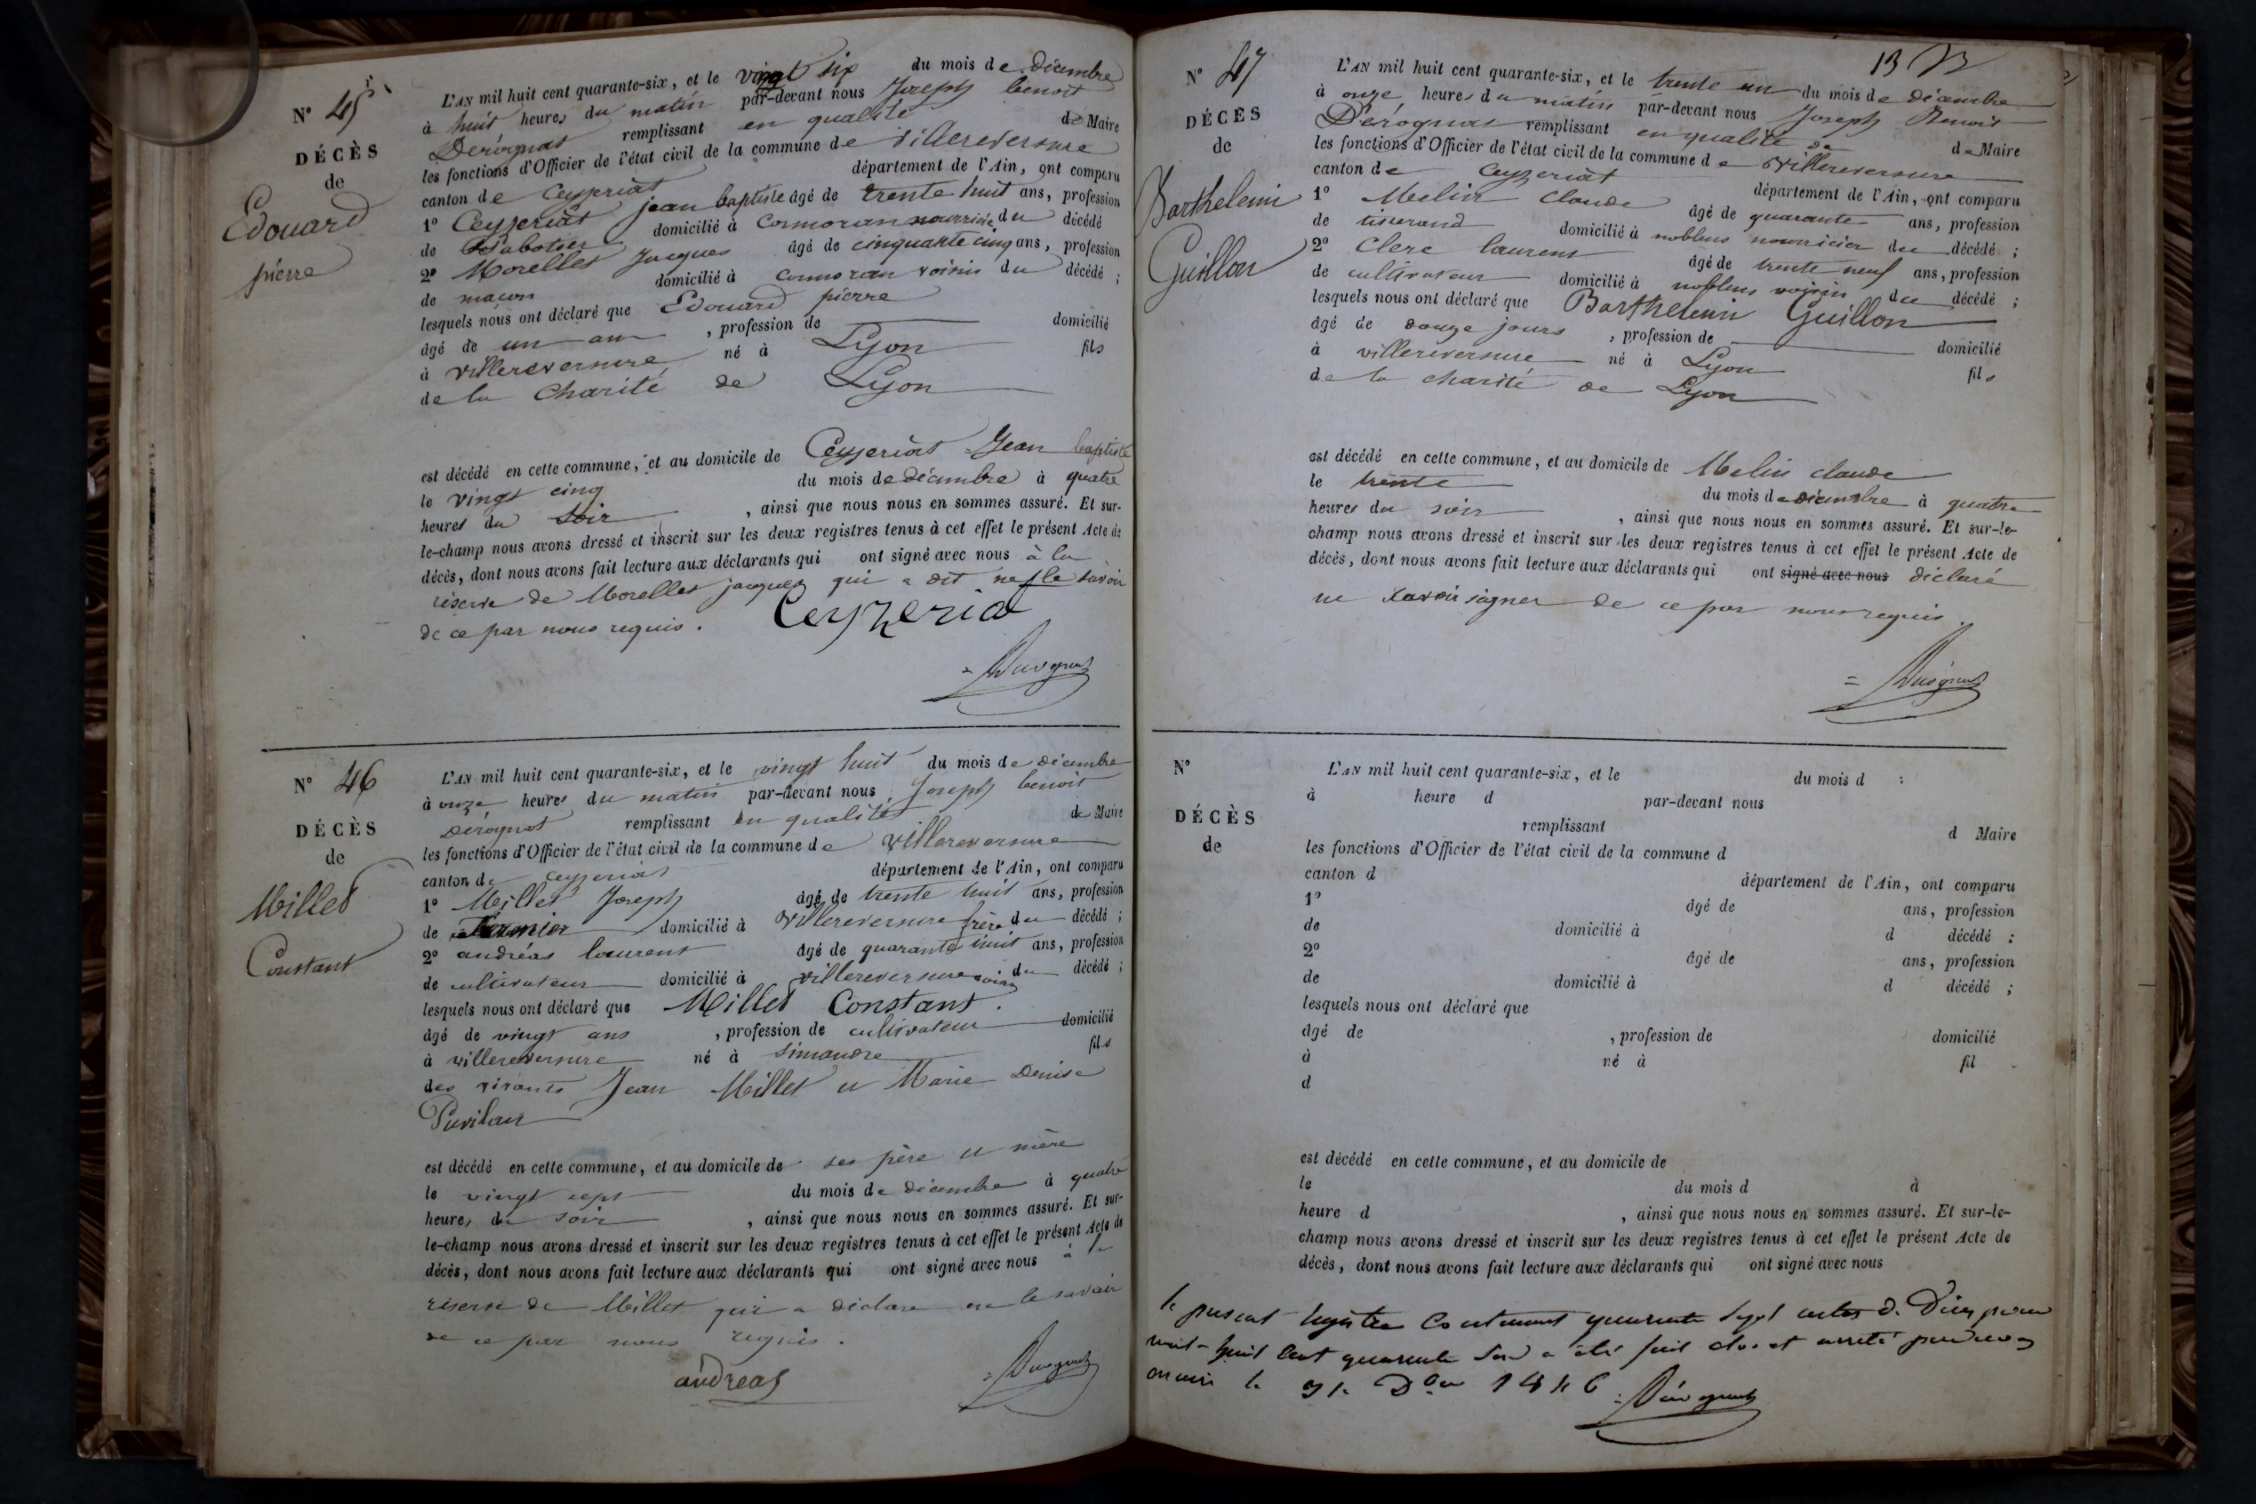 N° 45
DÉCÈS
de
Edouard
pierre
L'AN mil huit cent quarante-six, et le vingt six du mois de décembre
à huit heures du matin par-devant nous Joseph benoit
Dérognat remplissant en qualité de Maire
les fonctions d'Officier de l'état civil de la commune de villereversure
canton de Ceyzeriat département de l'Ain, ont comparu
1° Ceyzeriat jean baptiste âgé de trente huit ans, profession
de Sabotier domicilié à Cormoran nourricie du décédé
2° Morellet Jacques âgé de cinquante cinq ans, profession
de maçon domicilié à cormoran voisin du décédé ;
lesquels nous ont déclaré que Edouard pierre
âgé de un an , profession de domicilié
à villereversure né à Lyon fils
de la Charité de Lyon
est décédé en cette commune, et au domicile de Ceyzeriat Jean baptiste
le vingt cinq du mois de décembre à quatre
heures du soir , ainsi que nous nous en sommes assuré. Et sur-
le-champ nous avons dressé et inscrit sur les deux registres tenus à cet effet le présent Acte de
décès, dont nous avons fait lecture aux déclarants qui ont signé avec nous à la
réserve de Morellet jacques qui a dit ne le savoir
de ce par nous requis.
Ceyzeriat
Dérognat
N° 46
DÉCÈS
de
Millet
Constant
L'AN mil huit cent quarante-six, et le vingt huit du mois de décembre
à onze heures du matin par-devant nous Joseph benoit
Dérognat remplissant en qualité de Maire
les fonctions d'Officier de l'état civil de la commune de villereversure
canton de ceyzeriat département de l'Ain, ont comparu
1° Millet Joseph âgé de trente huit ans, profession
de fermier domicilié à villereversure frère du décédé ;
2° andréas laurent âgé de quarante huit ans, profession
de cultivateur domicilié à villereversure voisin du décédé ;
lesquels nous ont déclaré que Millet Constant.
âgé de vingt ans , profession de cultivateur domicilié
à villereversure né à simandre fils
des vivants Jean Millet et Marie Denise
Puvilan
est décédé en cette commune, et au domicile de ses père et mère
le vingt sept du mois de décembre à quatre
heures du soir , ainsi que nous nous en sommes assuré. Et sur-
le-champ nous avons dressé et inscrit sur les deux registres tenus à cet effet le présent Acte de
décès, dont nous avons fait lecture aux déclarants qui ont signé avec nous à la
réserve de Millet qui a déclaré ne le savoir
de ce par nous requis.
andreas
Dérognat
13
N° 47
DÉCÈS
de
Barthelemi
Guillon
L'AN mil huit cent quarante-six, et le trente un du mois de décembre
à onze heures du matin par-devant nous Joseph Benoit
Dérognat remplissant en qualité de de Maire
les fonctions d'Officier de l'état civil de la commune de villereversure
canton de ceyzeriat département de l'Ain, ont comparu
1° Melin Claude âgé de quarante ans, profession
de tisserand domicilié à noblens nourricier du décédé ;
2° Clerc laurent âgé de trente neuf ans, profession
de cultivateur domicilié à noblens voisin du décédé ;
lesquels nous ont déclaré que Barthelemi Guillon
âgé de douze jours , profession de domicilié
à villereversure né à Lyon fils
de la charité de Lyon
est décédé en cette commune, et au domicile de Melin claude
le trente du mois de décembre à quatre
heures du soir , ainsi que nous nous en sommes assuré. Et sur-le-
champ nous avons dressé et inscrit sur les deux registres tenus à cet effet le présent Acte de
décès, dont nous avons fait lecture aux déclarants qui ont signé avec nous déclaré
ne savoir signer de ce par nous requis.
Dérognat
N°
DÉCÈS
de
L'AN mil huit cent quarante-six, et le du mois d
à heure d par-devant nous
remplissant d Maire
les fonctions d'Officier de l'état civil de la commune d
canton d département de l'Ain, ont comparu
1° âgé de ans, profession
de domicilié à d décédé :
2° âgé de ans, profession
de domicilié à d décédé ;
lesquels nous ont déclaré que
âgé de , profession de domicilié
à né à fil
d
est décédé en cette commune, et au domicile de
le du mois d à
heure d , ainsi que nous nous en sommes assuré. Et sur-le-
champ nous avons dressé et inscrit sur les deux registres tenus à cet effet le présent Acte de
décès, dont nous avons fait lecture aux déclarants qui ont signé avec nous
le présent registre contenant quarante sept actes de Décès pour
mil huit cent quarante six a été fait clos et arrêté par nous
maire le 31 Dbre 1846
Dérognat